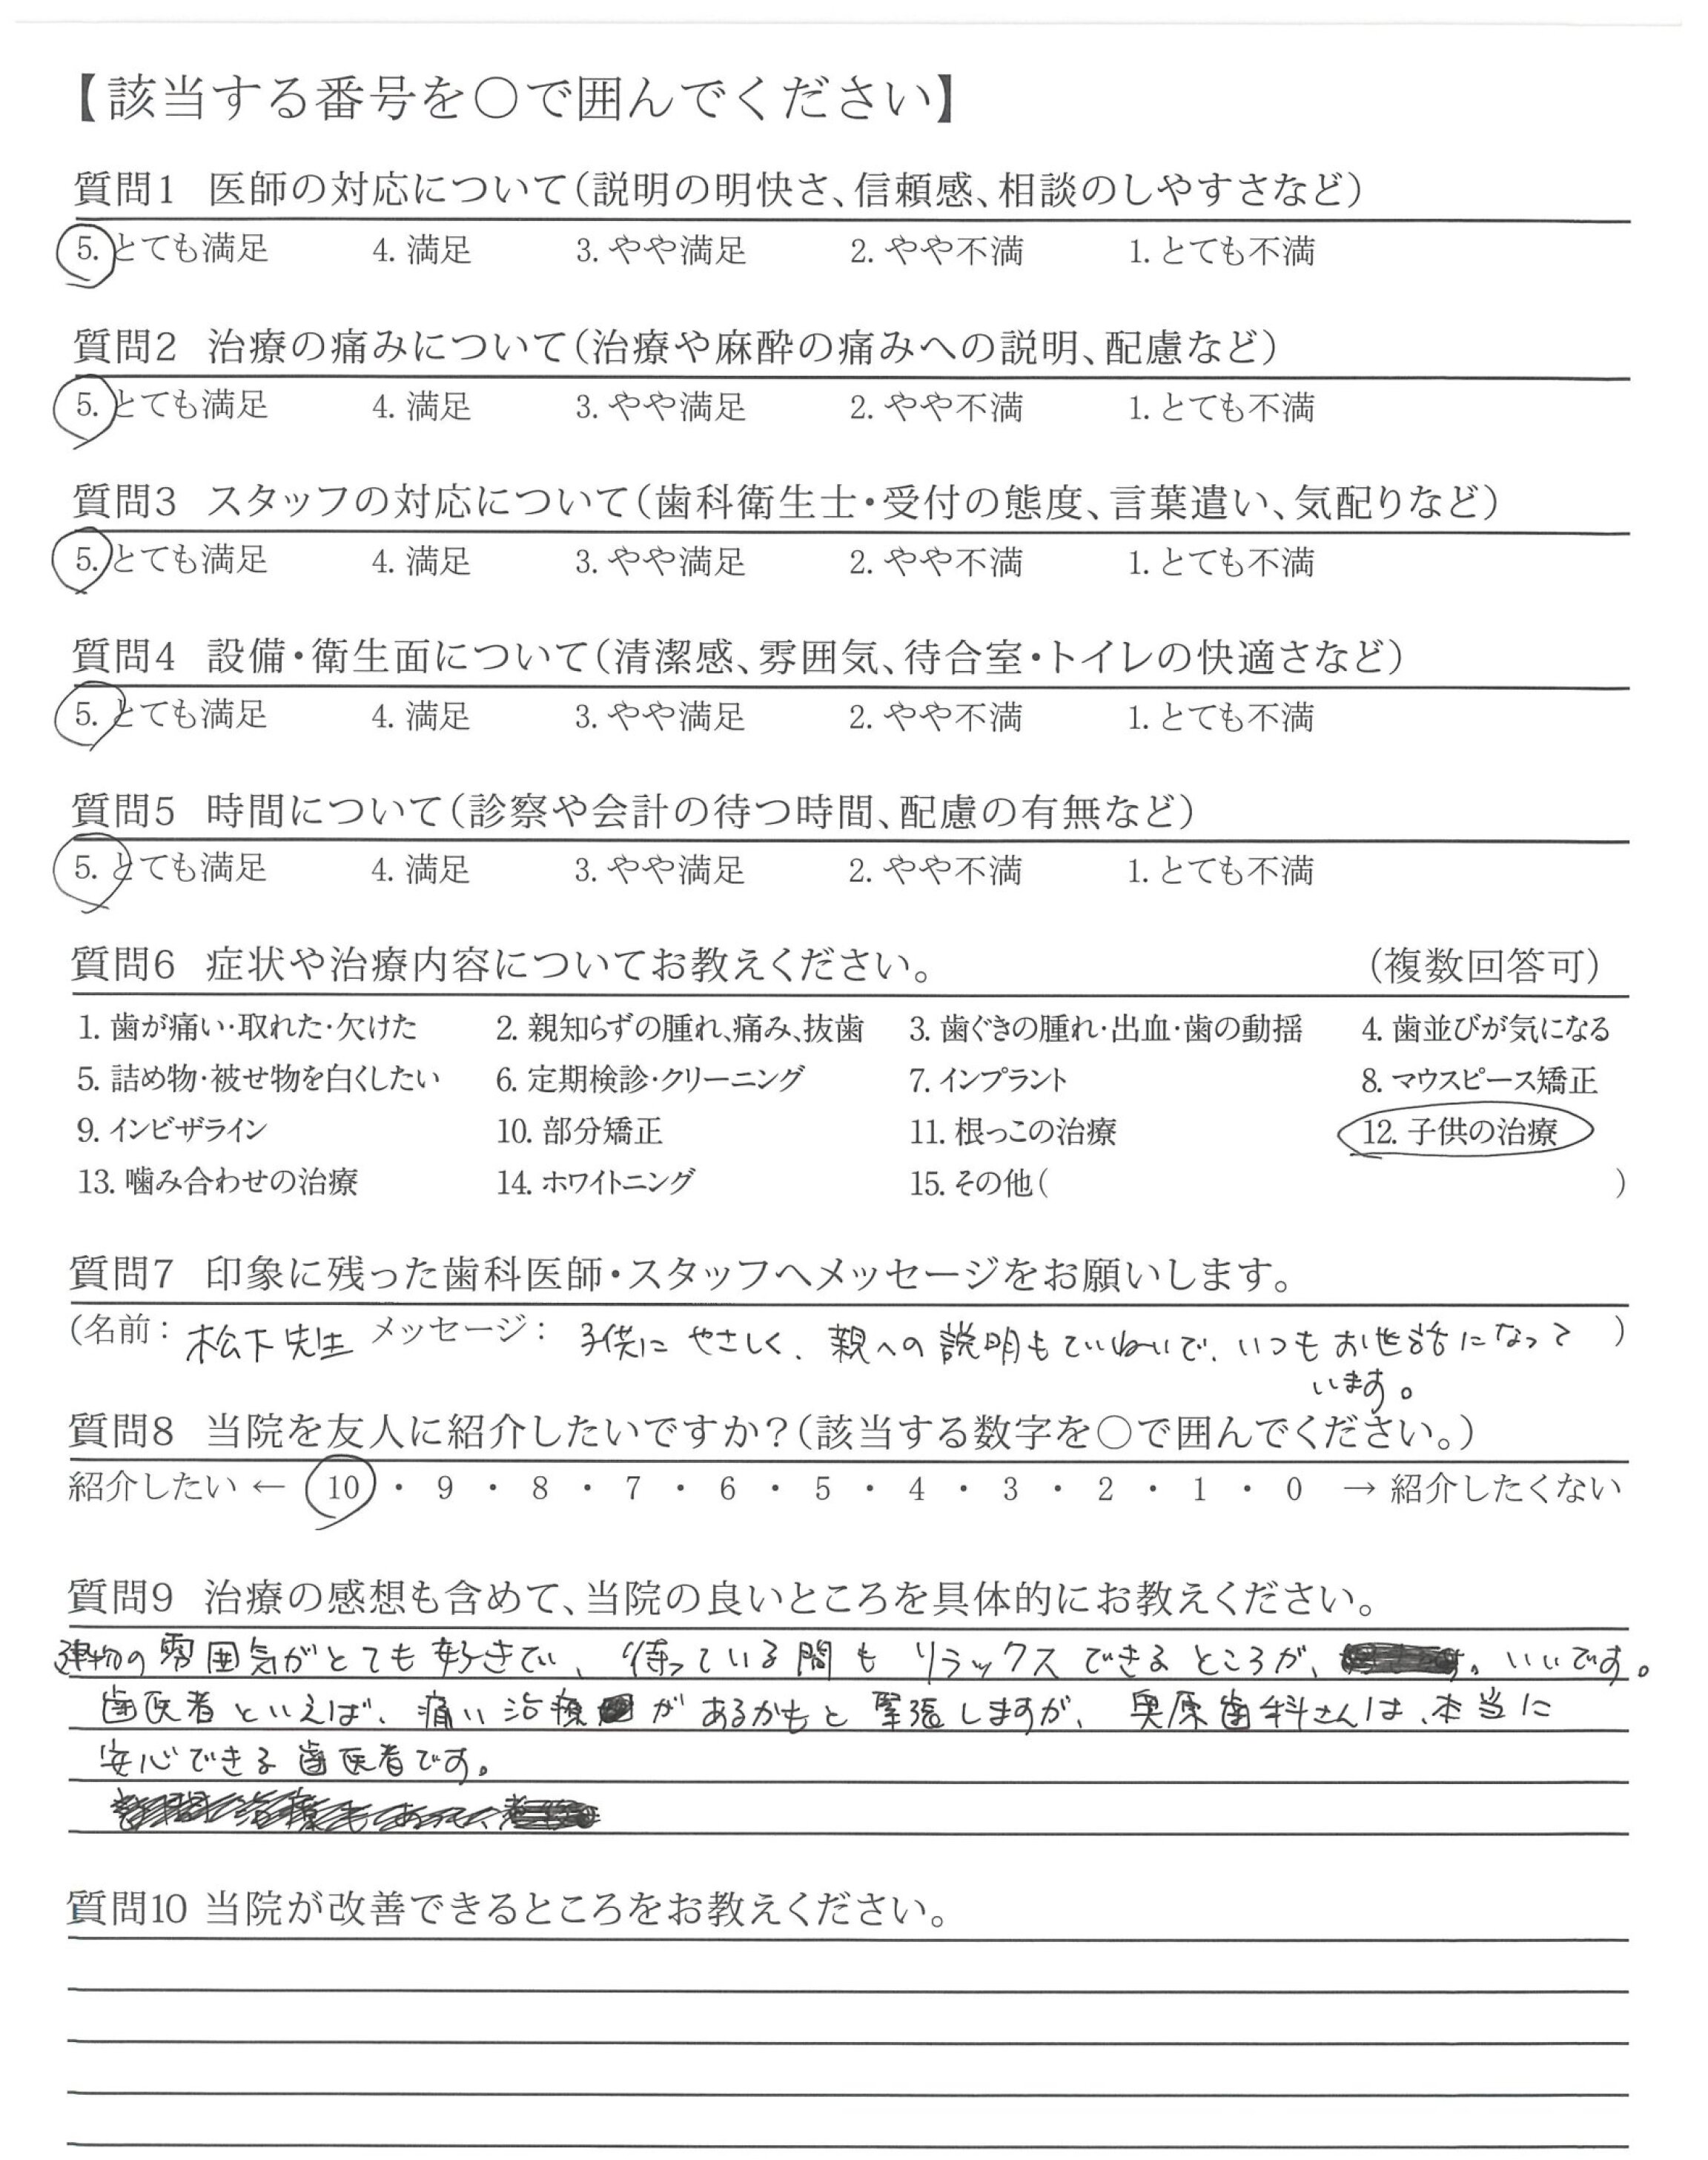 【該当する番号を○で囲んでください】
質問1 医師の対応について(説明の明快さ、信頼感、相談のしやすさなど)
5. とても満足 4. 満足 3. やや満足 2. やや不満 1. とても不満
質問2 治療の痛みについて(治療や麻酔の痛みへの説明、配慮など)
5. とても満足 4. 満足 3. やや満足 2. やや不満 1. とても不満
質問3 スタッフの対応について(歯科衛生士・受付の態度、言葉遣い、気配りなど)
5. とても満足 4. 満足 3. やや満足 2. やや不満 1. とても不満
質問4 設備・衛生面について(清潔感、雰囲気、待合室・トイレの快適さなど)
5. とても満足 4. 満足 3. やや満足 2. やや不満 1. とても不満
質問5 時間について(診察や会計の待つ時間、配慮の有無など)
5. とても満足 4. 満足 3. やや満足 2. やや不満 1. とても不満
質問6 症状や治療内容についてお教えください。 (複数回答可)
1. 歯が痛い・取れた・欠けた 2. 親知らずの腫れ、痛み、抜歯 3. 歯ぐきの腫れ・出血・歯の動揺 4. 歯並びが気になる
5. 詰め物・被せ物を白くしたい 6. 定期検診・クリーニング 7. インプラント 8. マウスピース矯正
9. インビザライン 10. 部分矯正 11. 根っこの治療 12. 子供の治療
13. 噛み合わせの治療 14. ホワイトニング 15. その他( )
質問7 印象に残った歯科医師・スタッフへメッセージをお願いします。
(名前: 松下先生 メッセージ: 子供にやさしく、親への説明もていねいで、いつもお世話になって )
います。
質問8 当院を友人に紹介したいですか?(該当する数字を○で囲んでください。)
紹介したい ← 10 ・ 9 ・ 8 ・ 7 ・ 6 ・ 5 ・ 4 ・ 3 ・ 2 ・ 1 ・ 0 → 紹介したくない
質問9 治療の感想も含めて、当院の良いところを具体的にお教えください。
建物の雰囲気がとても好きでい、待っている間もリラックスできるところが、いいです。
歯医者といえば、痛い治療があるかもと緊張しますが、奥原歯科さんは、本当に
安心できる歯医者です。
質問10 当院が改善できるところをお教えください。